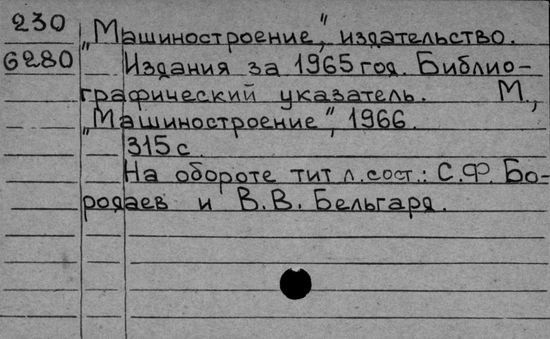 230 "Машиностроение", издательство.
G280 Издания за 1965 год. Библио-
графический указатель. М.,
"Машиностроение", 1966.
315 с.
На обороте тит л. сост.: С.Ф. Бо-
родаев и В.В. Бельгард.